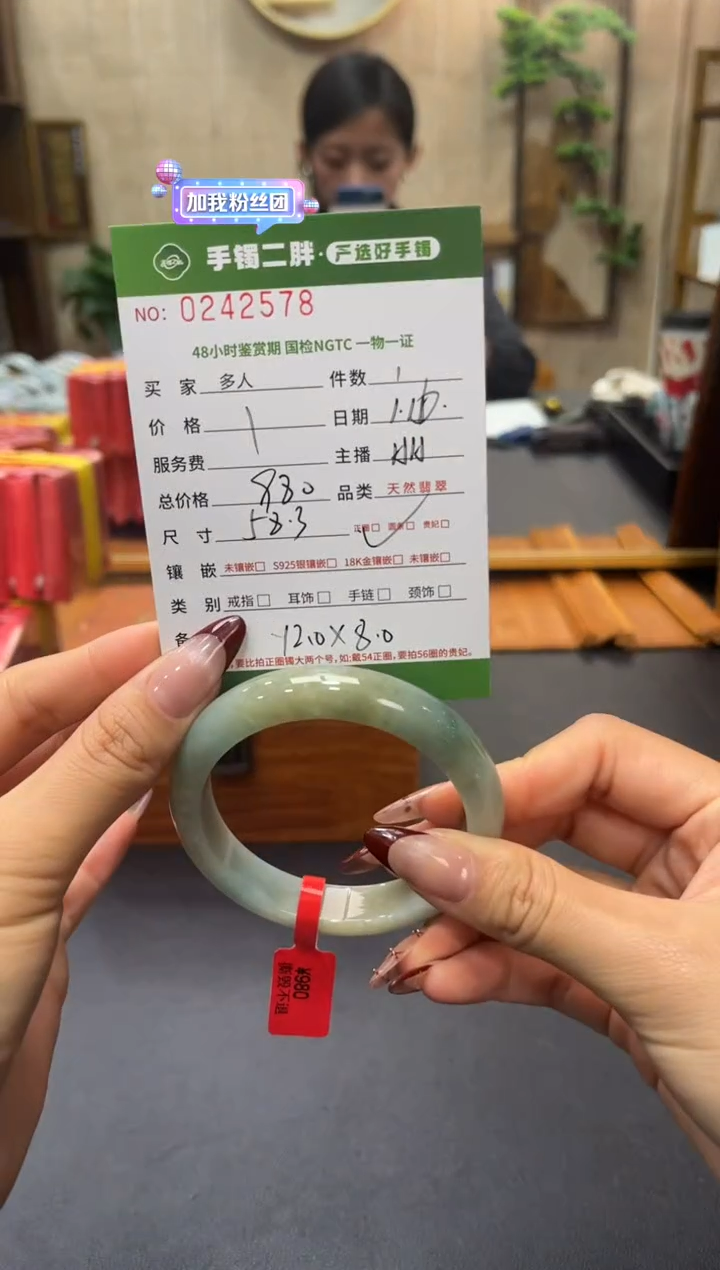 加我粉丝团
手镯二胖·严选好手镯
NO: 0242578
48小时鉴赏期 国检NGTC 一物一证
买家 多人 件数 1
价格 1 日期
服务费 主播
总价格 980 品类 天然翡翠
尺寸 58.3 正圈□ 圆条□ 贵妃□
镶嵌 未镶嵌□ S925银镶嵌□ 18K金镶嵌□ 未镶嵌□
类别 戒指□ 耳饰□ 手链□ 颈饰□
备 12.0×8.0
要比拍正圈镯大两个号,如:戴54正圈,要拍56圈的贵妃。
¥980
撕毁不退